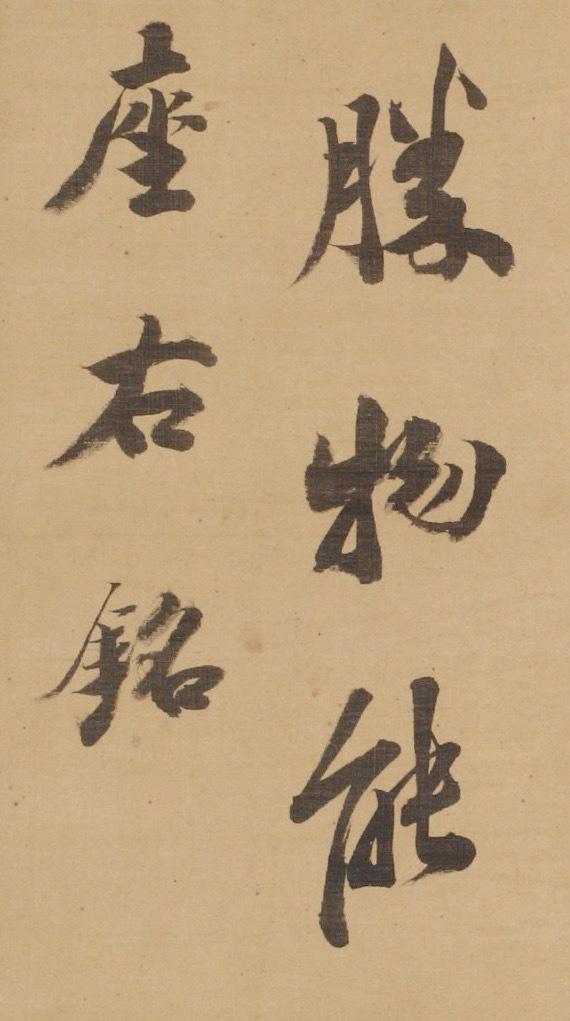 勝物能
座右銘